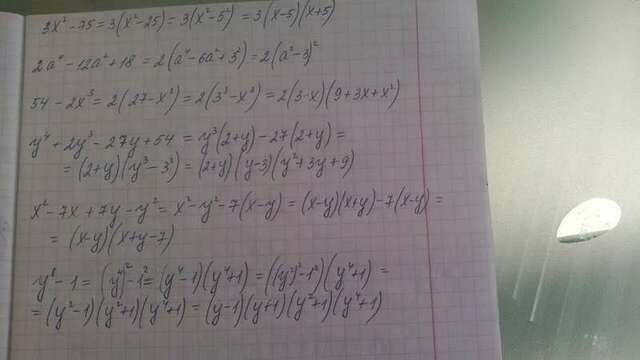 3x² - 75 = 3(x² - 25) = 3(x² - 5²) = 3(x-5)(x+5)
2a⁴ - 12a² + 18 = 2(a⁴ - 6a² + 5²) = 2(a² - 3)²
54 - 2x³ = 2(27 - x²) = 2(3³ - x³) = 2(3-x)(9+3x+x²)
y⁴ + 2y³ - 27y + 54 = y³(2+y) - 27(2+y) =
= (2+y)(y³ - 3³) = (2+y)(y-3)(y² + 3y + 9)
x² - 7x + 7y - y² = x² - y² - 7(x-y) = (x-y)(x+y) - 7(x-y) =
= (x-y)(x+y-7)
y⁸ - 1 = (y⁴)² - 1² = (y⁴-1)(y⁴+1) = ((y²)² - 1²)(y⁴+1) =
= (y²-1)(y²+1)(y⁴+1) = (y-1)(y+1)(y²+1)(y⁴+1)